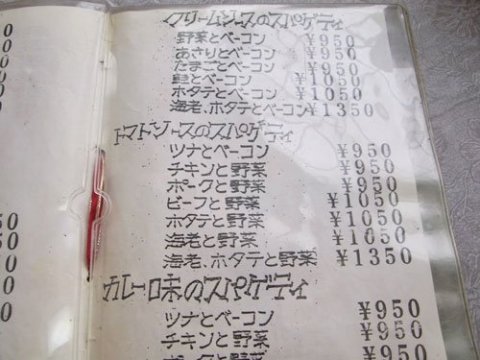 クリームソースのスパゲティ
野菜とベーコン ¥950
あさりとベーコン ¥950
たまごとベーコン ¥950
鮭とベーコン ¥1050
ホタテとベーコン ¥1050
海老、ホタテとベーコン ¥1350
トマトソースのスパゲティ
ツナとベーコン ¥950
チキンと野菜 ¥950
ポークと野菜 ¥950
ビーフと野菜 ¥1050
ホタテと野菜 ¥1050
海老と野菜 ¥1050
海老、ホタテと野菜 ¥1350
カレー味のスパゲティ
ツナとベーコン ¥950
チキンと野菜 ¥950
ポークと野菜 ¥950